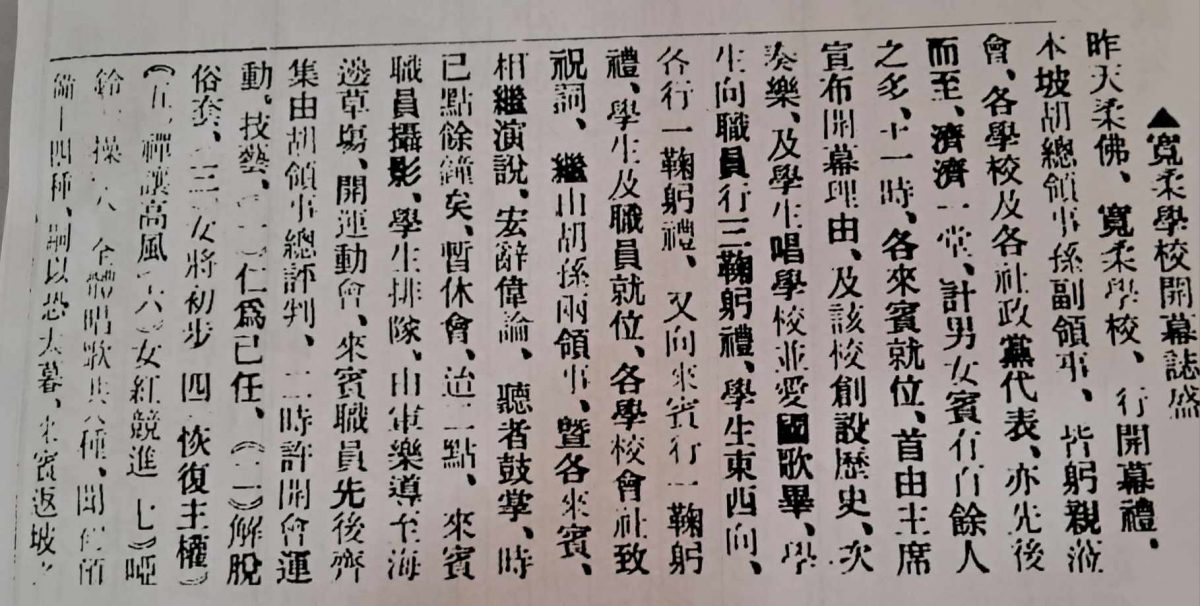 ▲寬柔學校開幕誌盛
昨天柔佛、寬柔學校、行開幕禮、
本坡胡總領事孫副領事、皆躬親涖
會、各學校及各社政黨代表、亦先後
而至、濟濟一堂、計男女賓有百餘人
之多、十一時、各來賓就位、首由主席
宣布開幕理由、及該校創設歷史、次
奏樂、及學生唱學校並愛國歌畢、學
生向職員行三鞠躬禮、學生東西向、
各行一鞠躬禮、又向來賓行一鞠躬
禮、學生及職員就位、各學校會社致
祝詞、繼由胡孫兩領事、暨各來賓、
相繼演說、宏辭偉論、聽者鼓掌、時
已點餘鐘矣、暫休會、迨二點、來賓
職員攝影、學生排隊、由軍樂導至海
邊草場、開運動會、來賓職員先後齊
集由胡領事總評判、二時許開會運
動、技藝、(一)仁為己任、(二)解脫
俗套、(三)女將初步(四)恢復主權
(五)禪讓高風(六)女紅競進(七)啞
鈴操(八)全體唱歌共八種、聞
十四種、嗣以恐太暮、來賓返坡